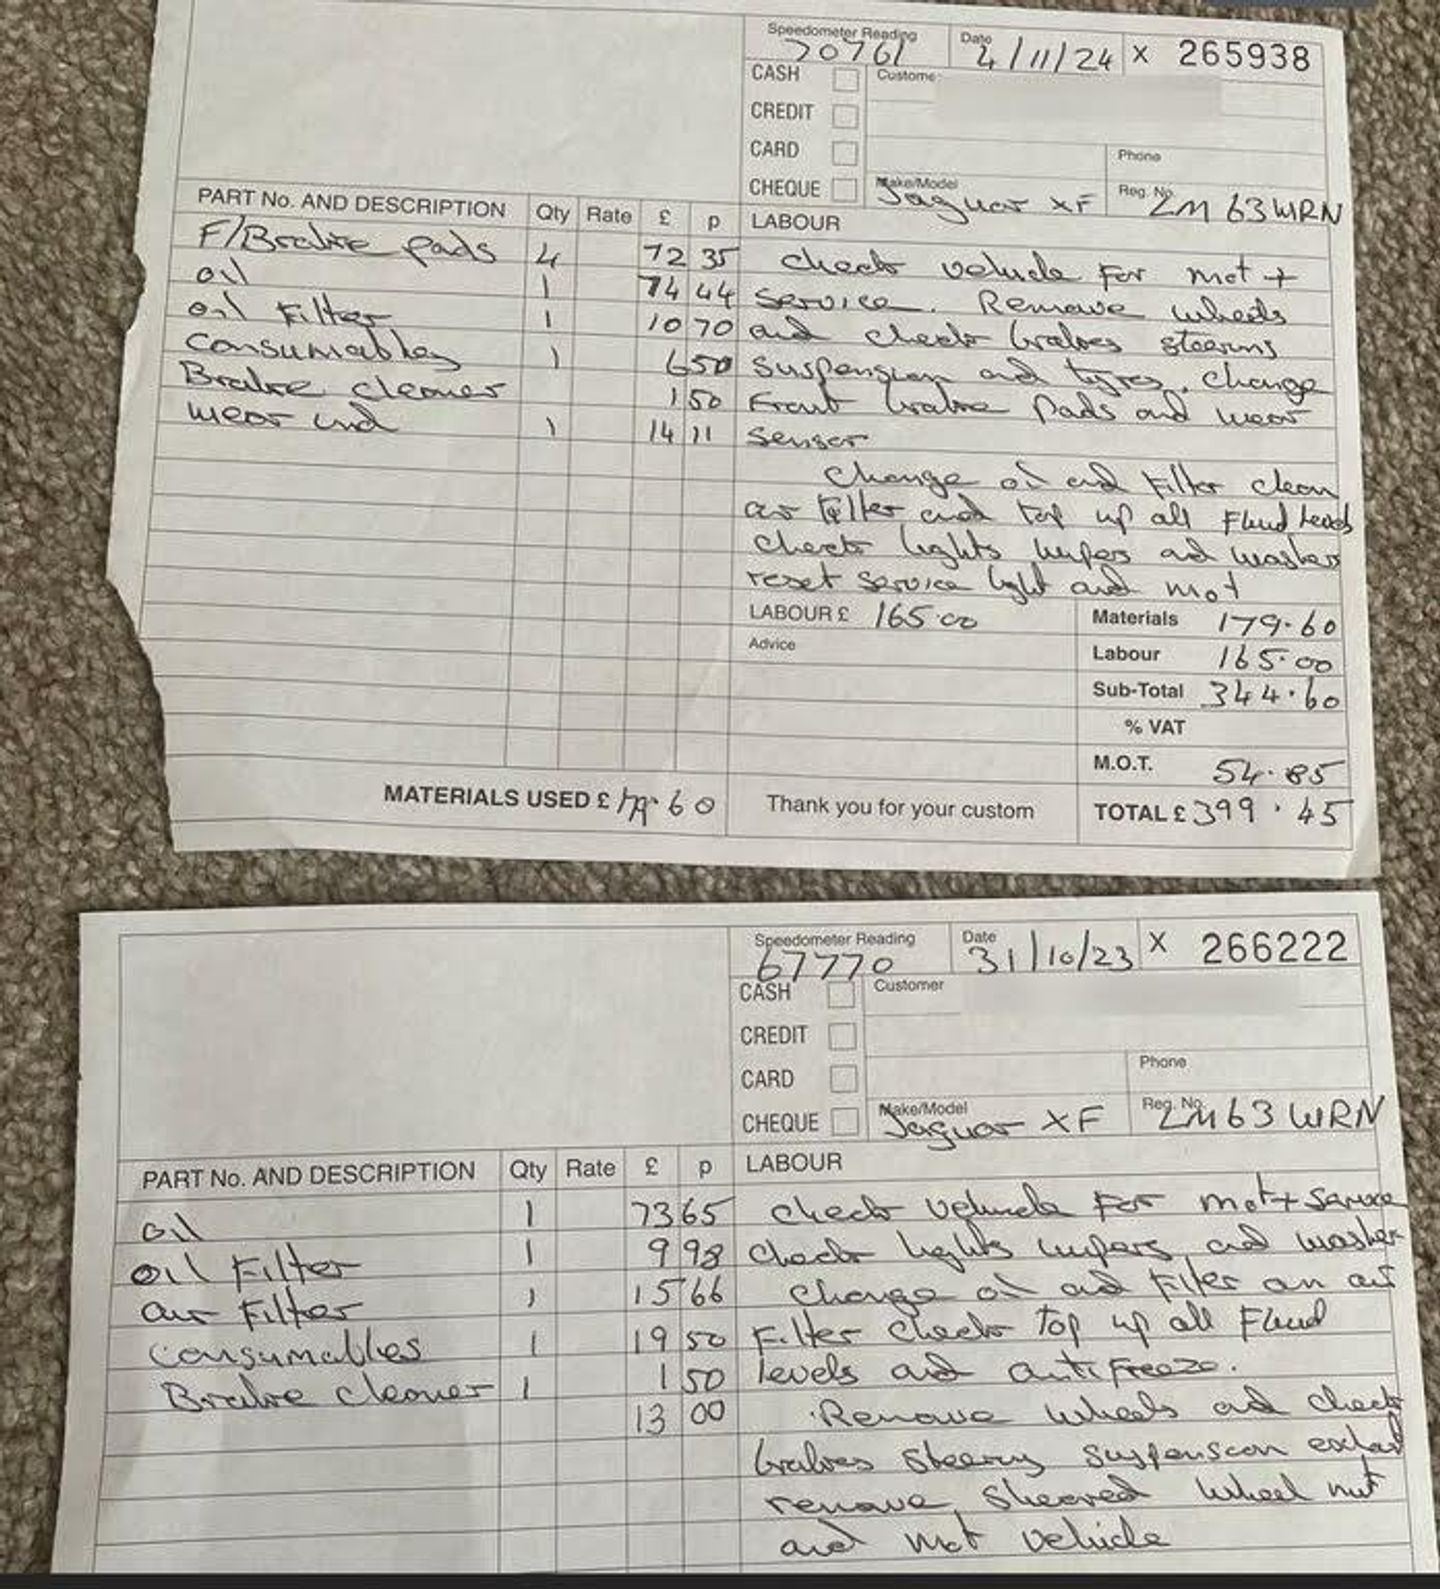 Speedometer Reading
70761
Date
4/11/24
X 265938
CASH
Custome
CREDIT
CARD
Phone
CHEQUE
Make/Model
Jaguar XF
Reg. No.
LM63WRN
PART No. AND DESCRIPTION Qty Rate £ p LABOUR
F/Brake pads 4 72 35 check vehicle for mot +
oil 1 74 44 service. Remove wheels
oil Filter 1 10 70 and check brakes steering
Consumables 1 6 50 suspension and tyres. Change
Brake cleaner 1 50 Front brake pads and wear
wear ind 1 14 11 sensor
Change oil and filter clean
air filter and top up all Fluid levels
check lights wipers and washers
reset service light and mot
LABOUR £ 165.00 Materials 179.60
Advice Labour 165.00
Sub-Total 344.60
% VAT
M.O.T. 54.85
MATERIALS USED £ 179.60 Thank you for your custom TOTAL £ 399.45
Speedometer Reading
67770
Date
31/10/23
X 266222
CASH
Customer
CREDIT
CARD
Phone
CHEQUE
Make/Model
Jaguar XF
Reg. No.
LM63 WRN
PART No. AND DESCRIPTION Qty Rate £ p LABOUR
oil 1 73 65 check vehicle for mot + service
oil Filter 1 9 98 check lights wipers and washer
air Filter 1 15 66 change oil and filter an air
Consumables 1 19 50 Filter check top up all Fluid
Brake cleaner 1 1 50 levels and antifreeze.
13 00 Remove wheels and check
brakes steering suspension
remove sheared wheel nut
and mot vehicle